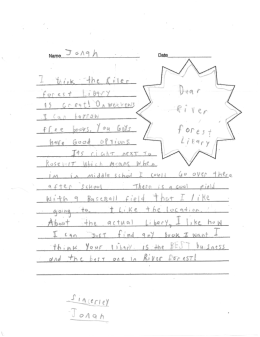 Name Jonah Date
Dear
River
Forest
Library
I think the River
Forest Library
is great! On weekends
I can
free books. You guys
have good options.
Its right next to
which means when
I'm in middle school I could go over there
after school. There is a cool field
With a Baseball field that I like
going to. I Like the location.
About the actual Libery, I like how
I can just find any book I want I
think your is the BEST business
and the best one in River Forest!
Sincerley
Jonah